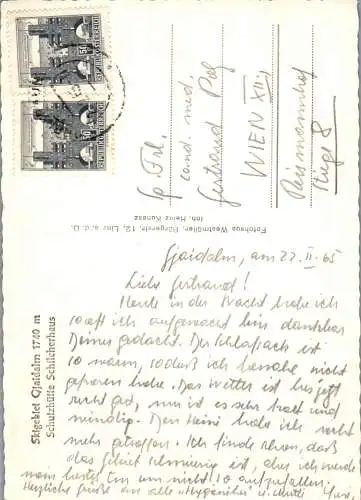 Skigebiet Gjaidalm 1740 m
Schutzhütte Schilcherhaus
Fotohaus Westmüller, Bürgerstr. 12, Linz a. d. D.
Inh. Heinz Kunesz
REPUBLIK ÖSTERREICH
50
REPUBLIK ÖSTERREICH
50
Frl.
cand. med.
Gertraud
WIEN XII
Stiege 8
Gjaidalm, am 22. II. 65
Liebe Gertraud!
Heute in der Nacht habe ich
so oft ich aufgewacht bin dankbar
Deiner gedacht. Der Schlafsack ist
so warm, sodaß ich beinahe nicht
gefroren habe. Das Wetter ist bis jetzt
recht gut, nur ist es sehr kalt und
windig. Den Heini habe ich nicht
mehr getroffen. Ich finde schon, daß
das Gebiet schwierig ist, aber ich werde
mein bestes tun um nicht so aufzufallen.
Herzliche Grüße an alle